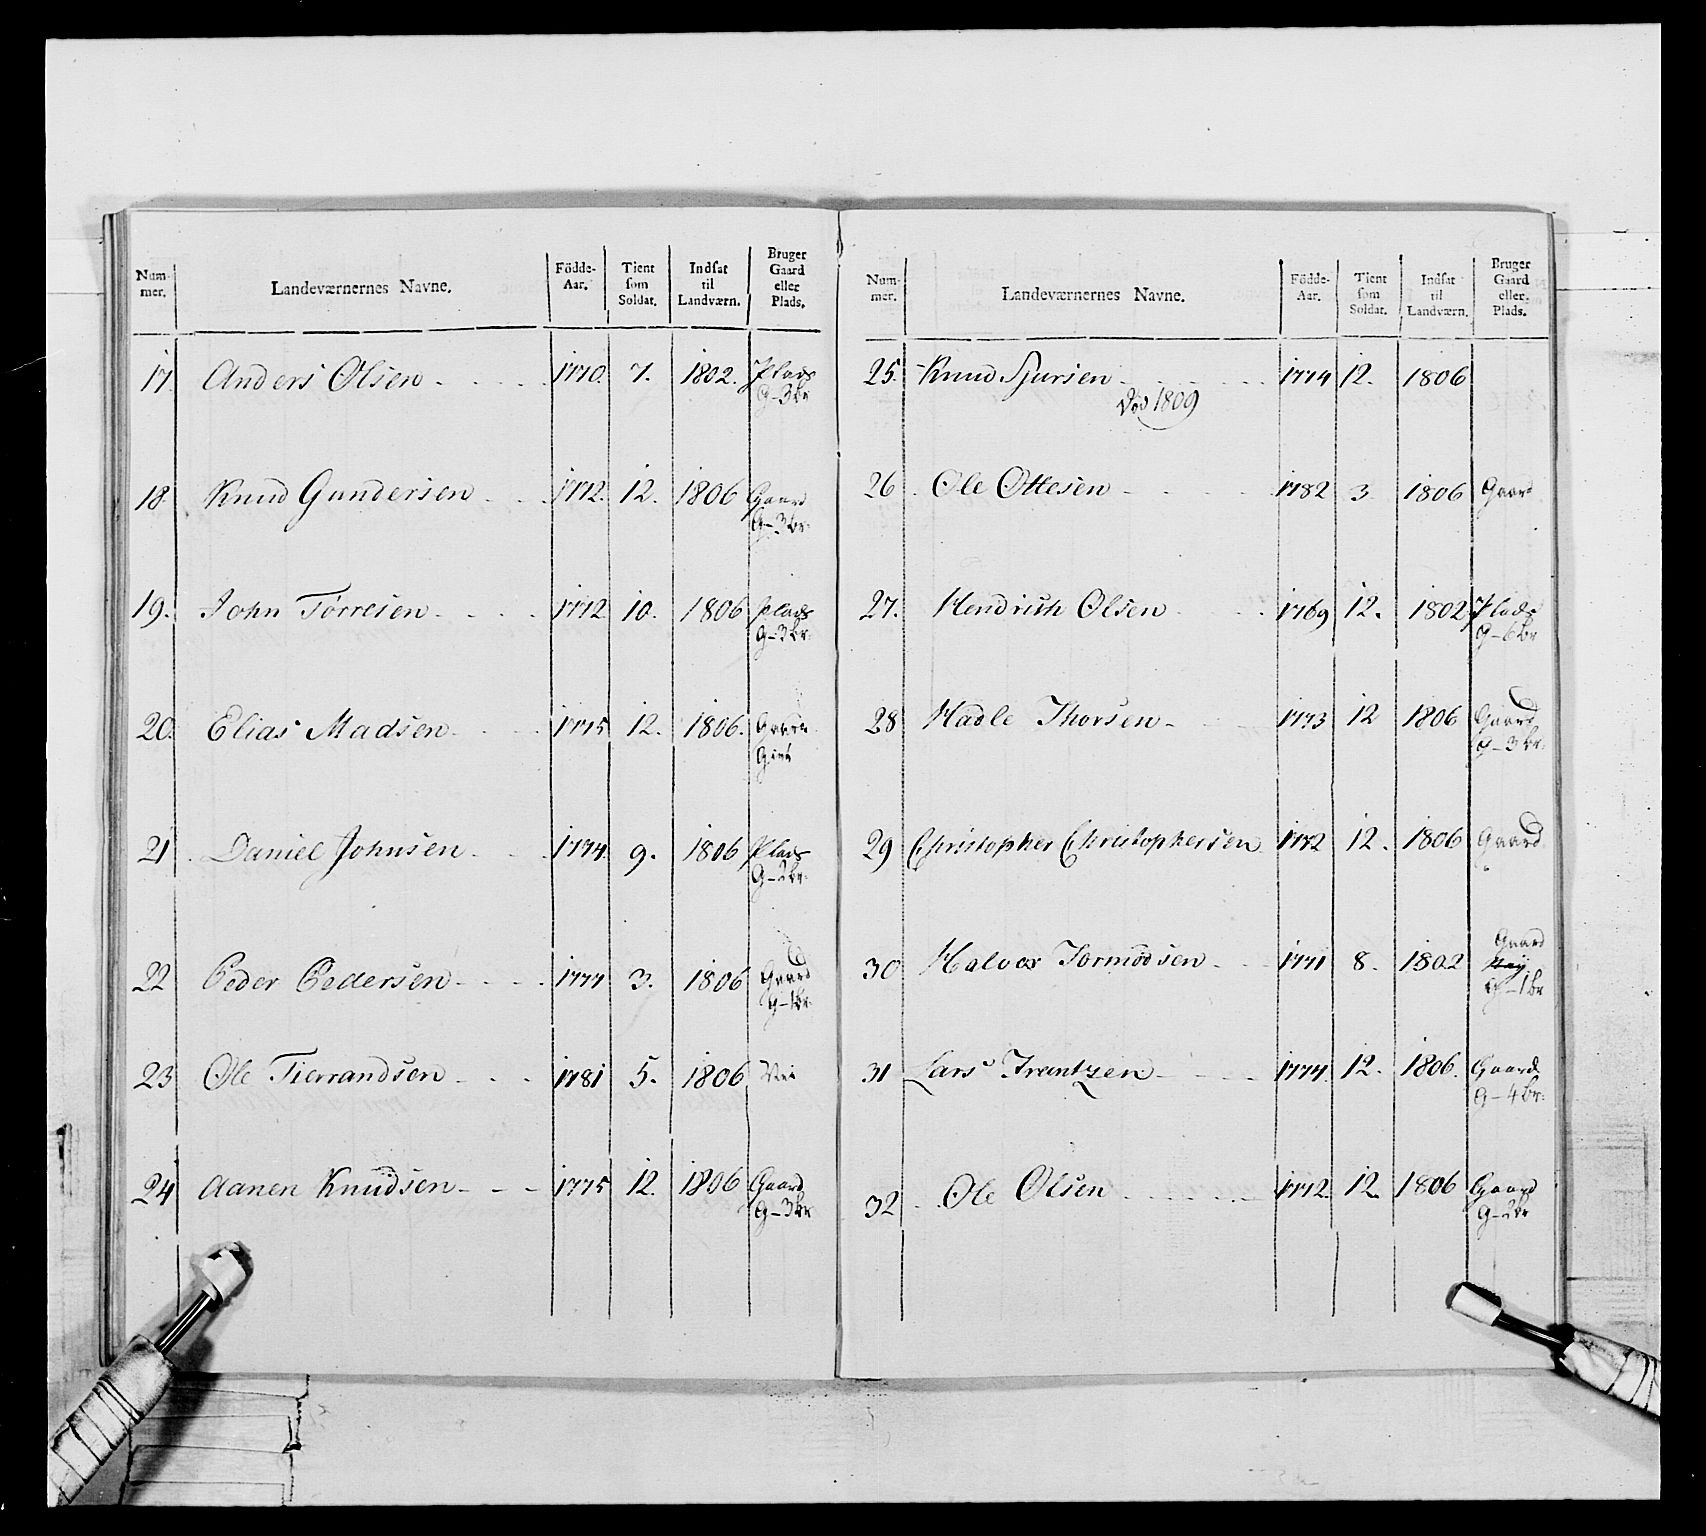 Num-mer. Landeværnernes Navne. Födde-Aar. Tient som Soldat. Indsat til Landværn. Bruger Gaard eller Plads.
17. Anders Olsen 1770. 7. 1802. Plads
G-3br
18. Knud Gundersen 1772. 12. 1806 Gaard
G-3br:
19. John Tørresen 1772 10. 1806 Plads
G-3br:
20. Elias Madsen 1775 12. 1806. Gaard
Givt
21 Daniel Johnsen 1774. 9. 1806 Plads
G-2br:
22 Peder Pedersen 1777 3. 1806 Gaard
G-1br:
23 Ole Tierrandsen 1781 5. 1806
24 Aanen Knudsen 1775 12. 1806 Gaard
G-3br
Num-mer. Landeværnernes Navne. Födde-Aar. Tient som Soldat. Indsat til Landværn. Bruger Gaard eller Plads.
25. Knud Sjursen 1774 12. 1806
Død 1809
26 Ole Ottesen 1782 3 1806 Gaard
27. Hendrich Olsen 1769 12. 1802 Plads
G-6br
28 Hadle Thorsen 1773 12 1806 Gaard
G-3br:
29 Christopher Christophersen 1772 12. 1806 Gaard
Gaard
30 Halvor Tormodsen 1771 8. 1802
G-1br
31 Lars Frantzen 1774. 12. 1806. Gaard
G-4br:
32 Ole Olsen 1772. 12. 1806 Gaard
G-2br